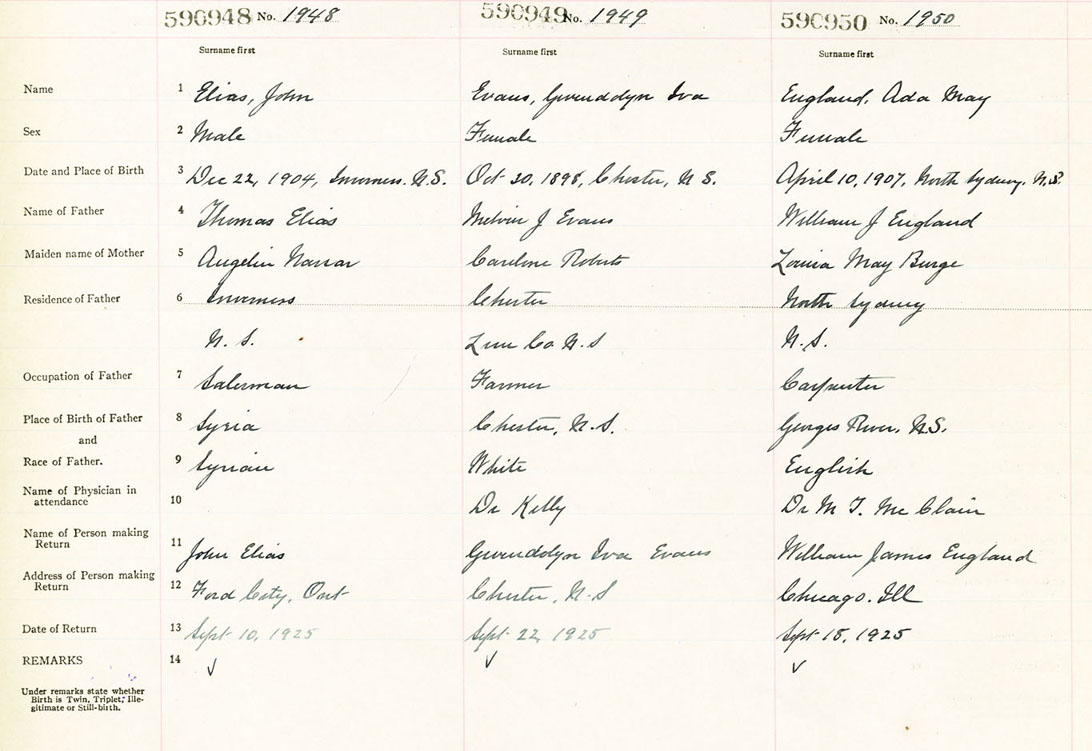 590948 No. 1948 590949 No. 1949 590950 No. 1950
Surname first Surname first Surname first
Name 1 Elias, John Evans, Gwenddlyn Iva England, Ada May
Sex 2 Male Female Female
Date and Place of Birth 3 Dec 22, 1904, Inverness. N.S. Oct 20, 1898, Chester, N S. April 10, 1907, North Sydney, N.S.
Name of Father 4 Thomas Elias Melvin J Evans William J England
Maiden name of Mother 5 Angelin Nassar Carilene Roberts Louisa May Burge
Residence of Father 6 Inverness Chester North Sydney
N. S. Lun Co N.S N.S.
Occupation of Father 7 Salesman Farmer Carpenter
Place of Birth of Father 8 Syria Chester, N.S. Georges River, N.S.
and
Race of Father. 9 Syrian White English
Name of Physician in
attendance 10 Dr Kelly Dr M T. Mc Clain
Name of Person making
Return 11 John Elias Gwenddlyn Iva Evans William James England
Address of Person making
Return 12 Ford City, Ont Chester, N-S Chicago. Ill
Date of Return 13 Sept 10, 1925 Sept 22, 1925 Sept 18, 1925
REMARKS 14 √ √ √
Under remarks state whether
Birth is Twin, Triplet, Ille-
gitimate or Still-birth.